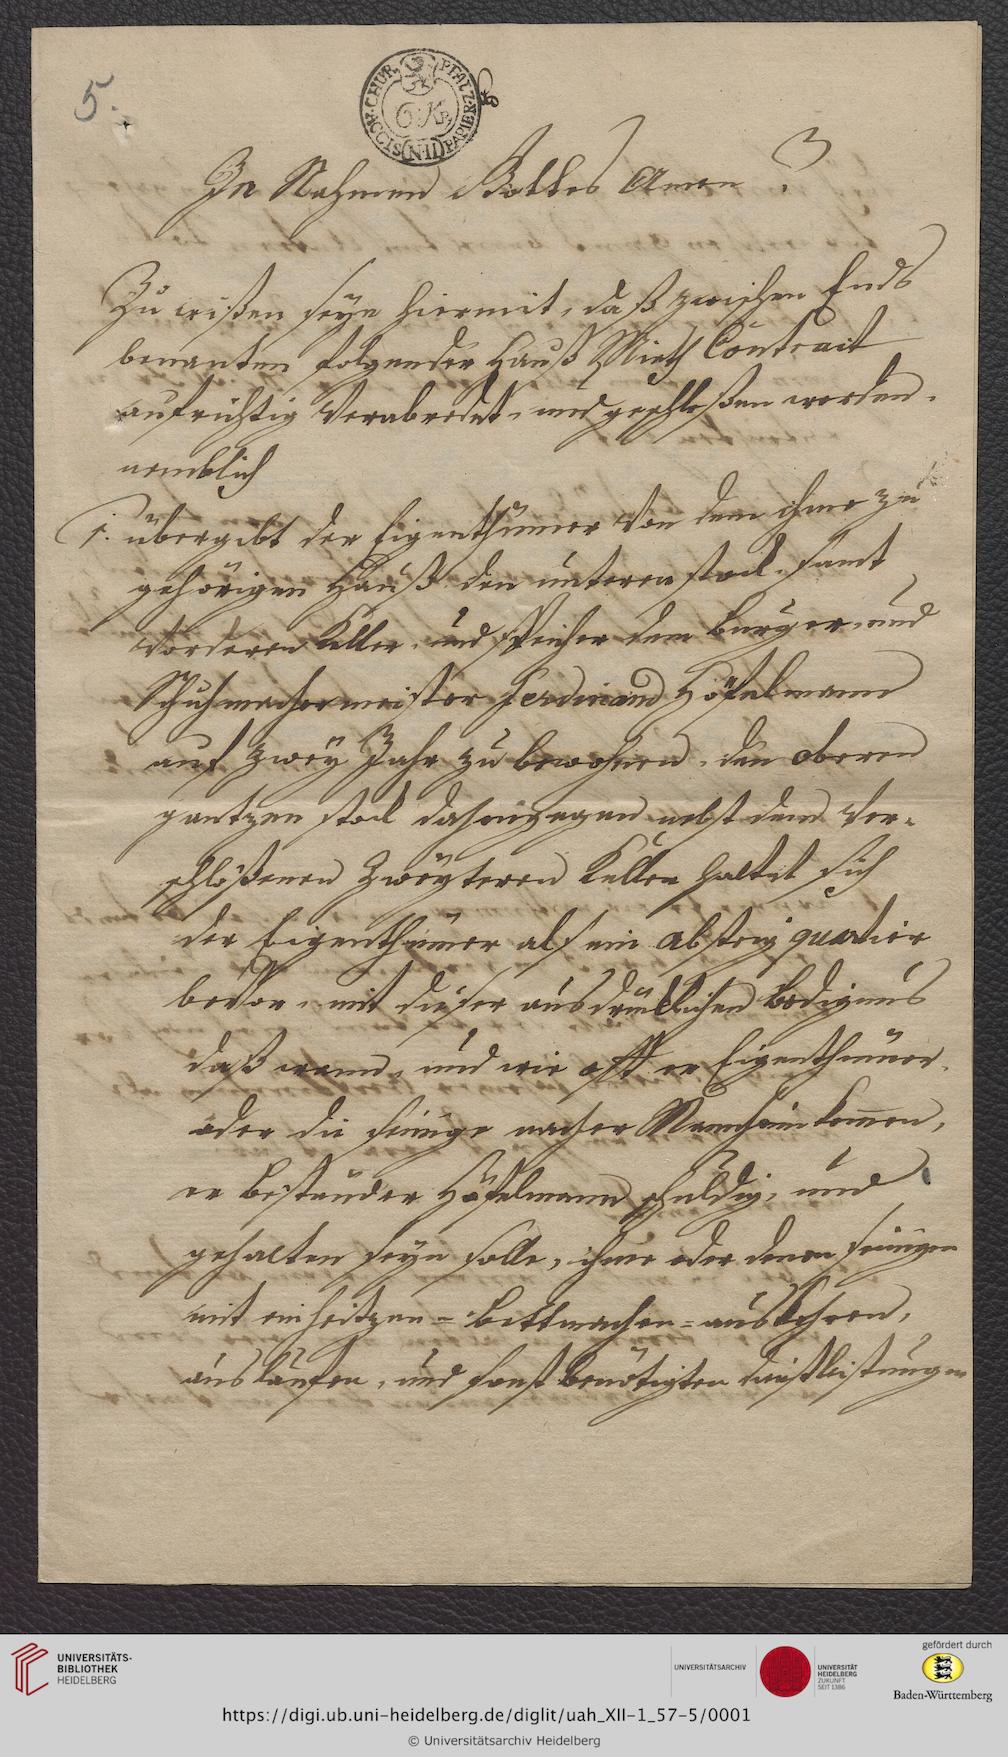 5.
CHUR PFALZ
6 Kr
ACCIS (N II) PAPIER
In Nahmen Gottes Amen
Zu wißen seye hiermit, daß zwischen Ends
benanten folgender Hauß Mieth Contract
aufrichtig verabredet, und geschloßen worden.
nemblich
1. übergibt der Eigenthümer von dem ihme zu
gehörigen Hauß den unteren stock samt
vorderen Keller, und speicher dem burger und
Schuhmachermeister Ferdinand Höffelmann
auf zwey Jahr zu bewohnen, den oberen
gantzen stock dahingegen nebst dem ver-
schloßenen zweyteren Keller haltet sich
der Eigenthümer als ein absteig quartier
bevor, mit dieser ausdrücklichen Bedignus
daß wann, und wie offt er Eigenthümer,
oder die seinige nacher Mannheim kommen,
er Beständer Höffelmann schuldig, und
gehalten seyn solle, ihme oder denen seinigen
mit einheitzen = bettmachen = auskehren,
auslaufen, und sonst benötigten dienstleistungen
UNIVERSITÄTS-
BIBLIOTHEK
HEIDELBERG
UNIVERSITÄTSARCHIV
UNIVERSITÄT
HEIDELBERG
ZUKUNFT
SEIT 1386
gefördert durch
Baden-Württemberg
https://digi.ub.uni-heidelberg.de/diglit/uah_XII-1_57-5/0001
© Universitätsarchiv Heidelberg